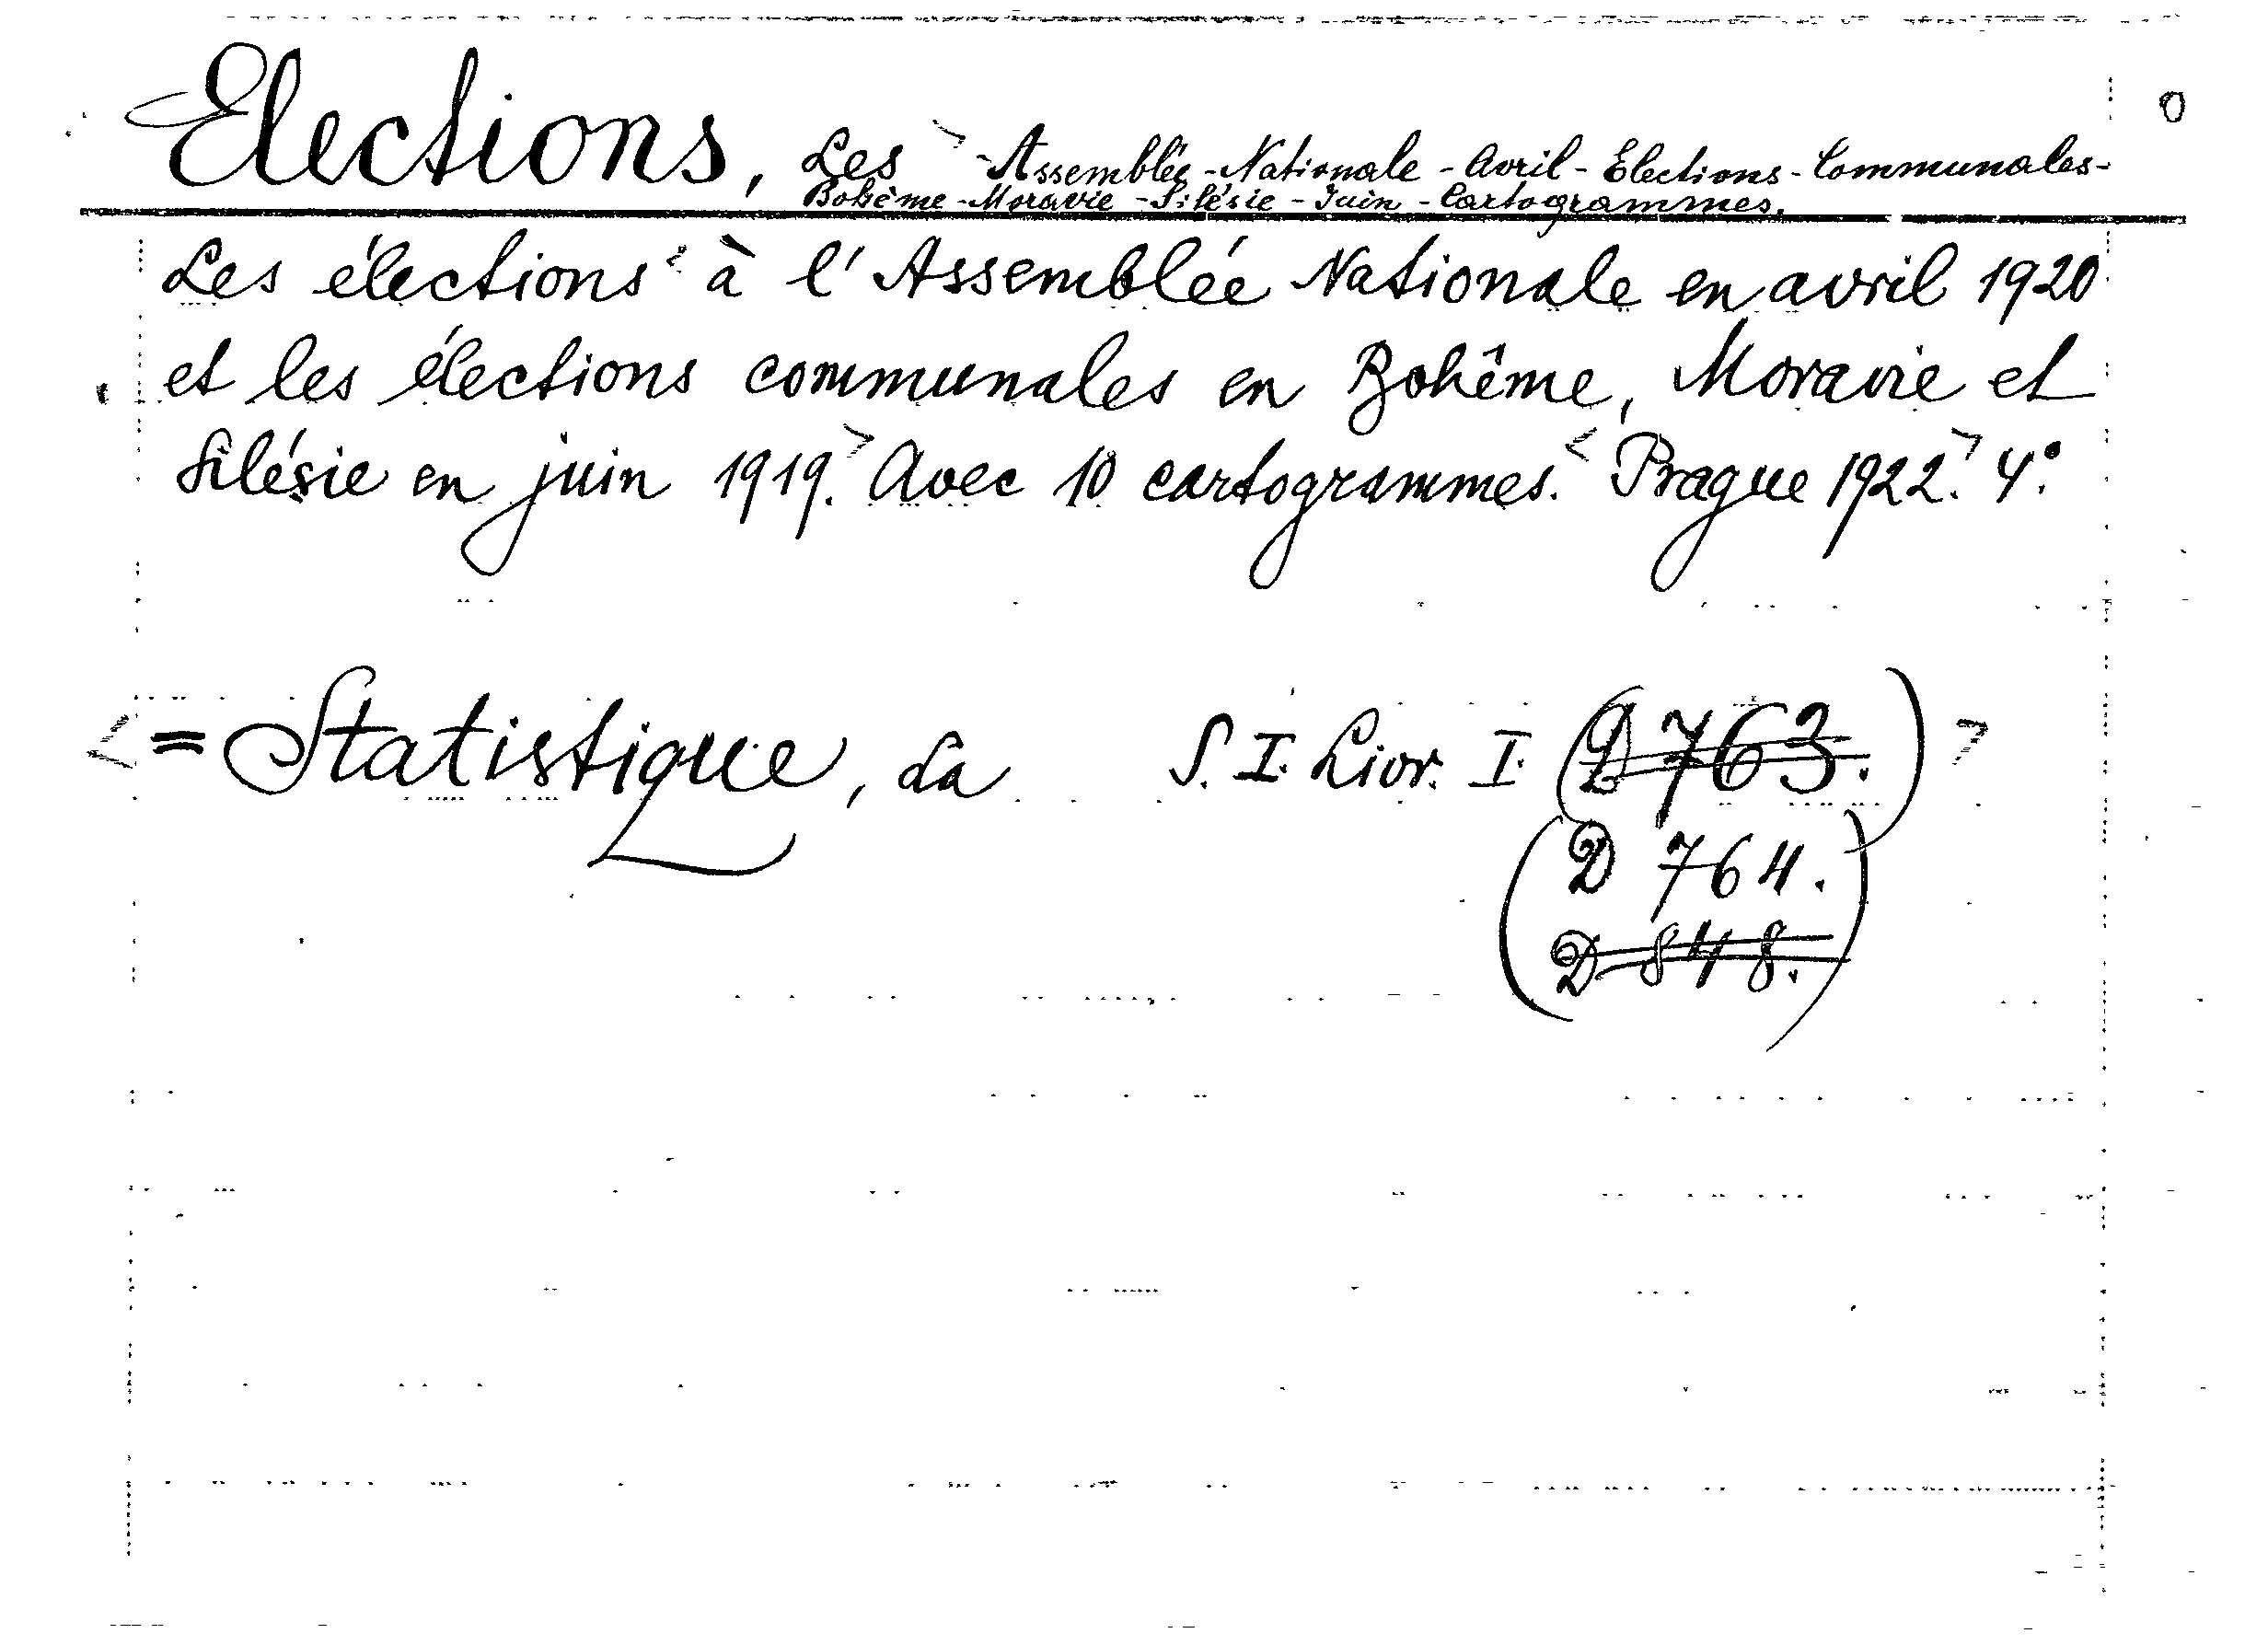 Elections, Les -Assemblée-Nationale-Avril-Elections-Communales-
Bohême-Moravie-Silésie-Juin-Cartogrammes.
Les élections à l'Assemblée Nationale en avril 1920
et les élections communales en Bohême, Moravie et
Silésie en juin 1919. Avec 10 cartogrammes. Prague 1922. 4°.
= Statistique, La S. I. Livr. I. (D 763.)
(D 764.
D 848.)